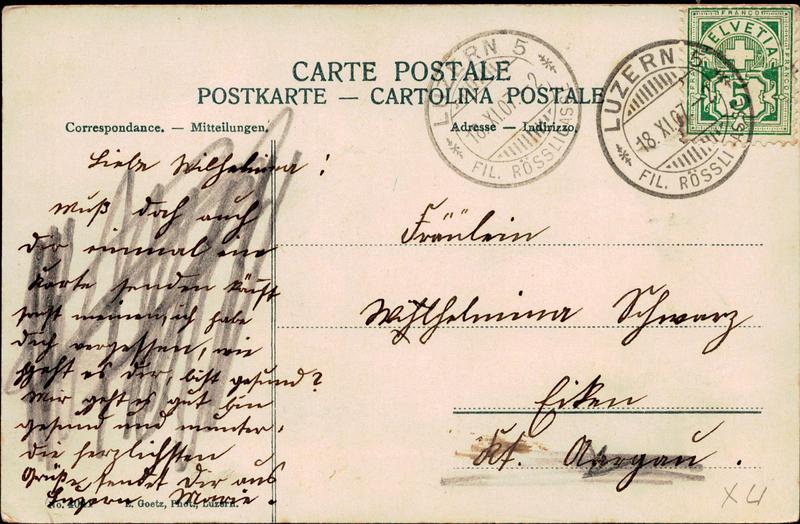 CARTE POSTALE
POSTKARTE — CARTOLINA POSTALE
Correspondance. — Mitteilungen.
Adresse — Indirizzo.
FRANCO
HELVETIA
FRANCO
5
LUZERN 5
18.XI.07
FIL. RÖSSLIGASSE
LUZERN 5
18.XI.07
FIL. RÖSSLIGASSE
Liebe Wilhelmina!
Muß doch auch
Dir einmal eine
Karte senden könnst
sonst meinen, ich habe
Dich vergessen, wie
geht es Dir, bist gesund?
Mir geht es gut bin
gesund und munter.
die herzlichsten
Grüße sendet Dir aus
Luzern Marie.
Fräulein
Wilhelmina Schwarz
Eiken
Kt. Aargau.
E. Goetz, Phot., Luzern.
X4